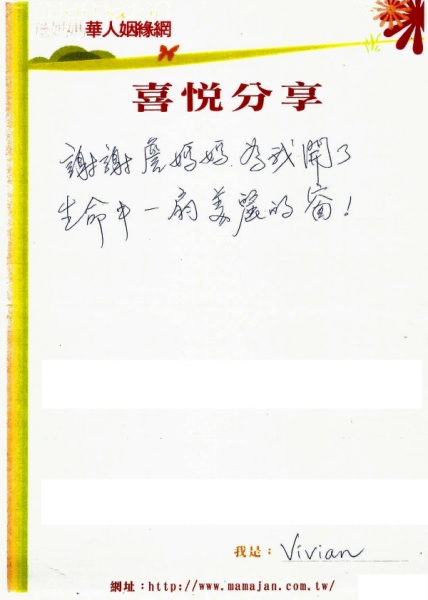 華人姻緣網
喜悅分享
謝謝詹媽媽為我開了
生命中一扇美麗的窗!
我是: Vivian
網址:http://www.mamajan.com.tw/